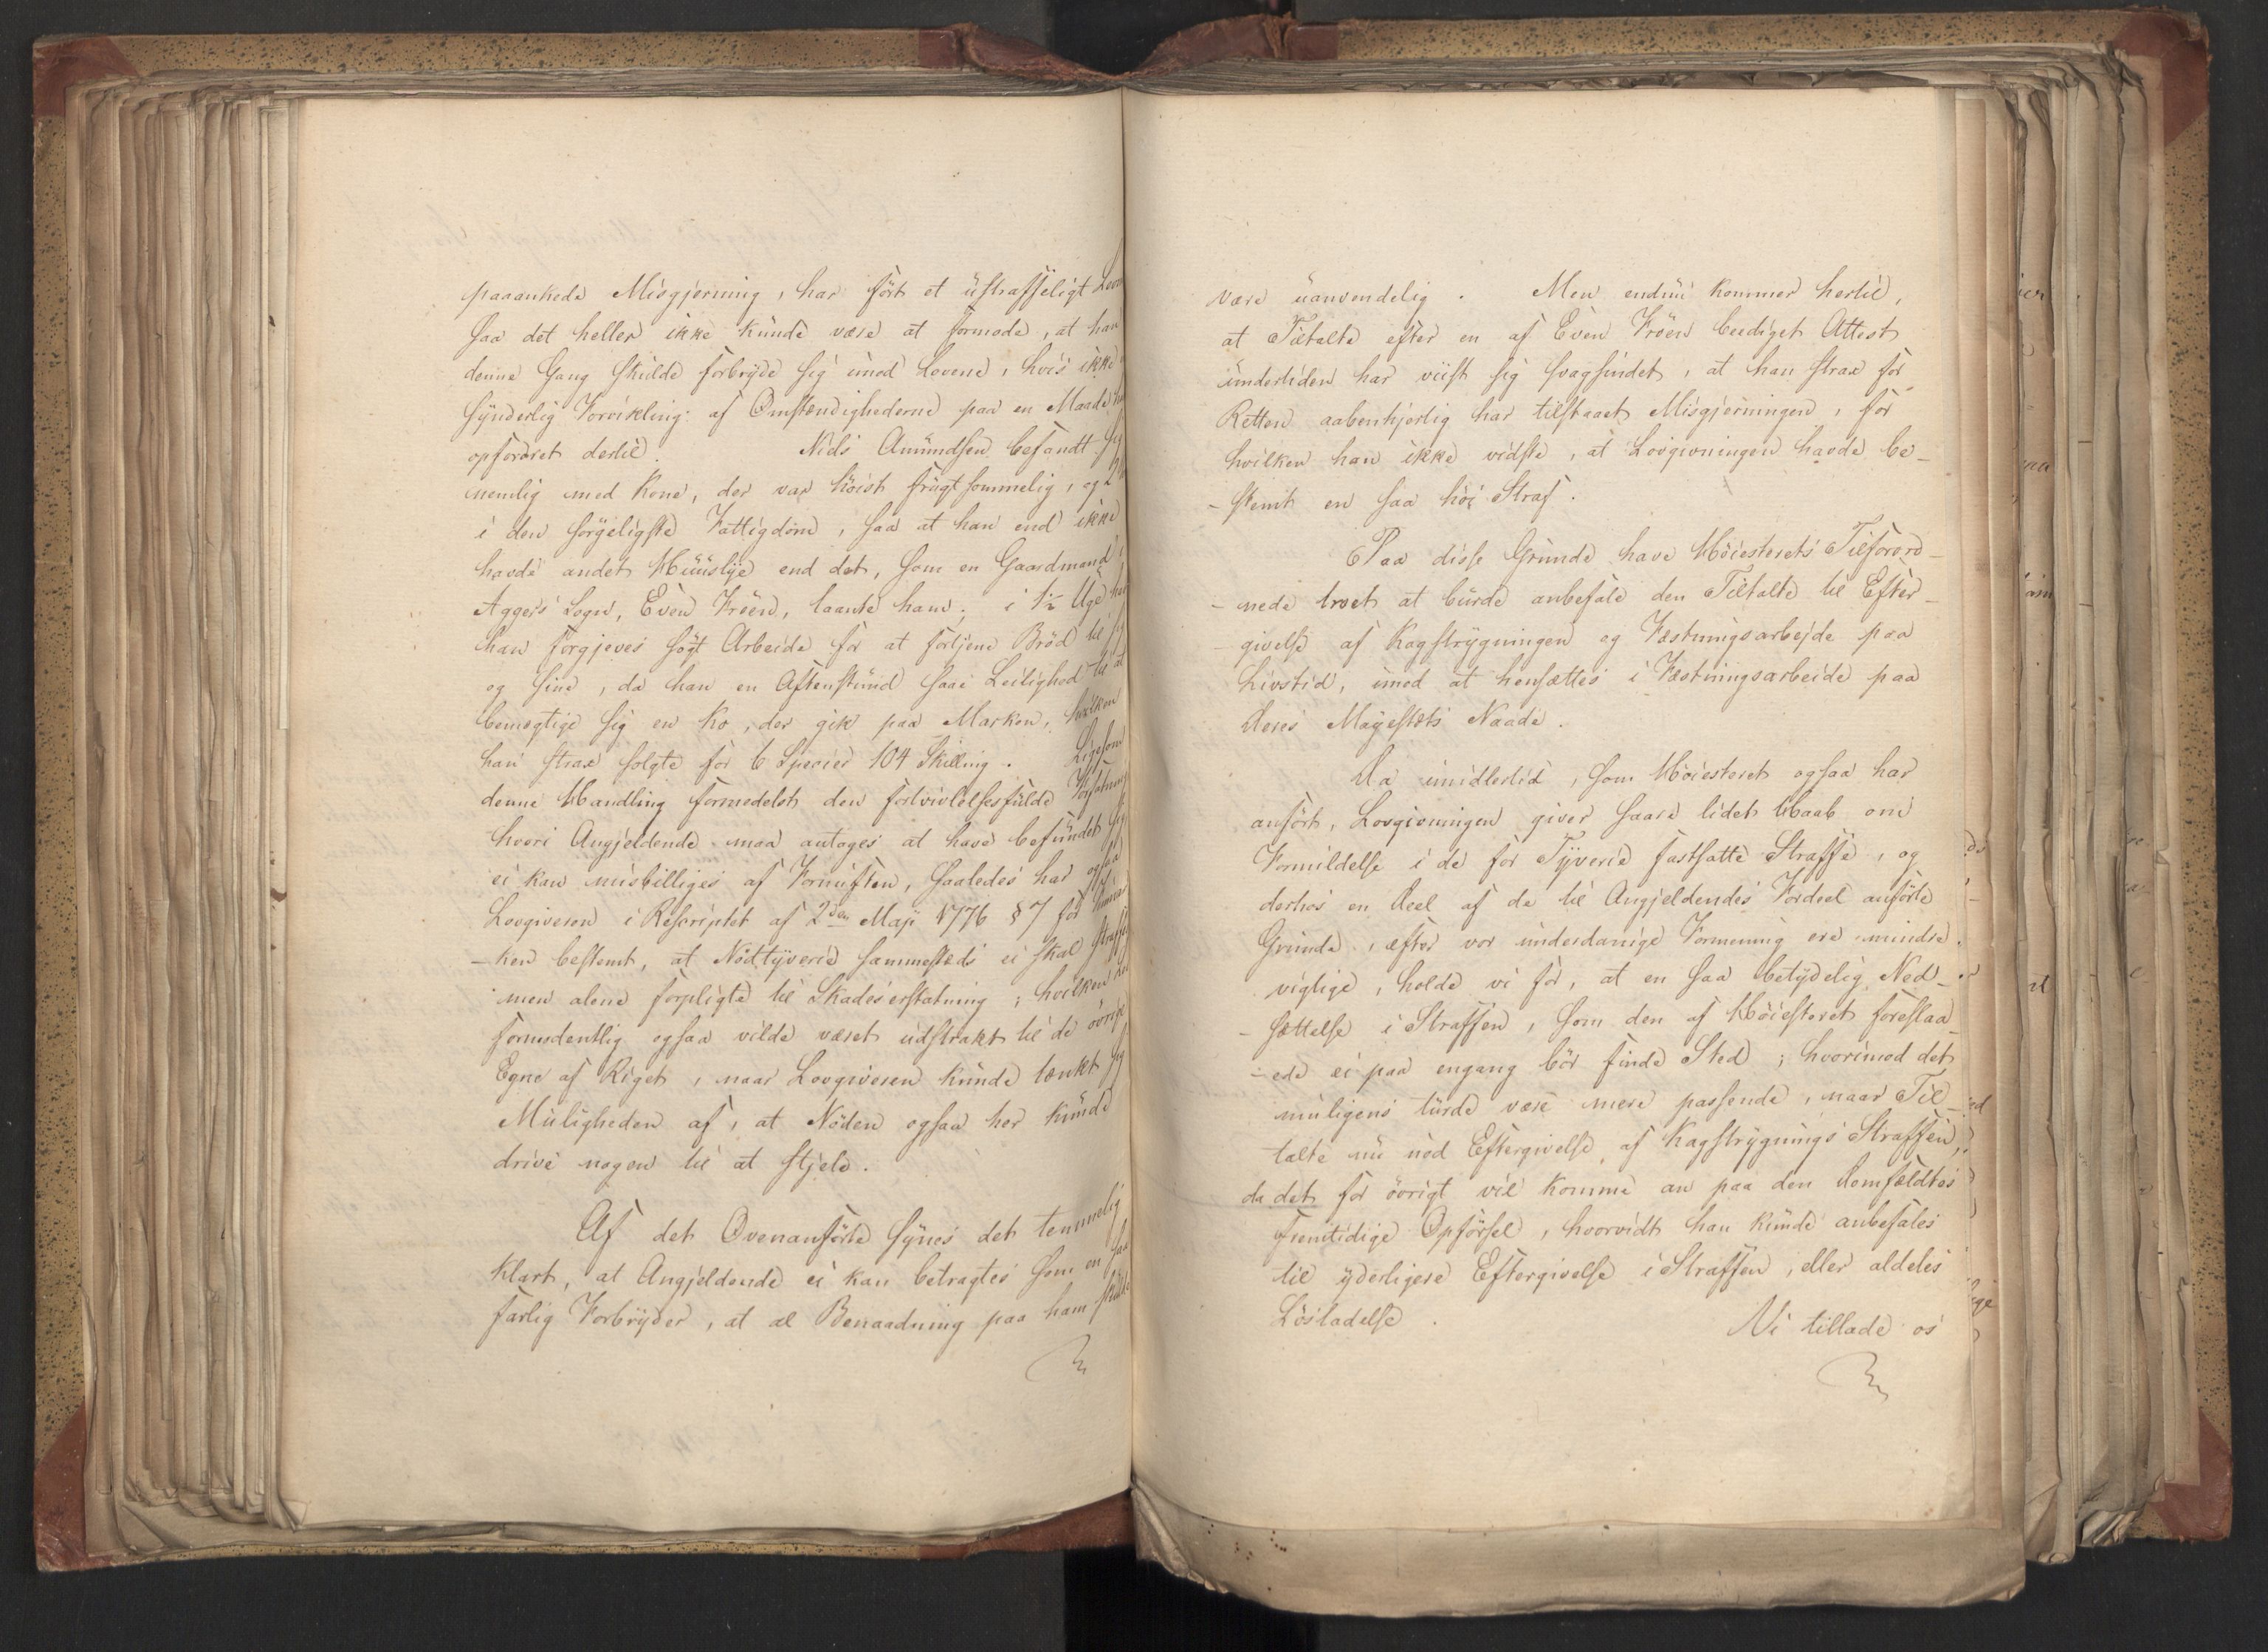 paaankede Misgjerning, har ført et ustraffeligt
saa det heller ikke kunde være at formode, at han
denne Gang skulde forbryde sig imod Lovene, hvis ikke
synderlig Forvikling af Omstændighederne paa en Maade
opfordret dertil. Niels Amundsen befandt sig
nemlig med Kone, der var høist frugtsommelig, og 2
i den sørgeligste Fattigdom, saa at han end ikke
havde andet Huuslye end det, som en Gaardmand i
Aggers Sogn, Even Frøen, laante ham; i 1½ Uge
han forgjeves søgt Arbeide for at fortjene Brød til sig
og sine, da han en Aftenstund saae Leilighed til at
bemægtige sig en Ko, der gik paa Marken, hvilken
han strax solgte for 6 Specier 104 Skilling. Ligesom
denne Handling formedelst den fortvivlelsesfulde Forfatning
hvori Angjeldende maa antages at have befundet sig
ei kan misbilliges af Fornuften, saaledes har ogsaa
Lovgiveren i Rescriptet af 2den Maji 1776 § 7 for
-ken bestemt, at Nødtyverie sammesteds ei skal straffes
men alene forpligte til Skades erstatning; hvilken
formodentlig ogsaa vilde været udstrakt til de øvrige
Egne af Riget, naar Lovgiveren kunde tænkt sig
Muligheden af, at Nøden ogsaa her kunde
drive nogen til at stjele.
Af det Ovenanførte synes det temmelig
klart, at Angjeldende ei kan betragtes som en saa
farlig Forbryder, at al Benaadning paa ham skulde
være uanvendelig. Men endnu kommer hertil,
at Tiltalte efter en af Even Frøen beediget Attest
undertiden har viist sig svagsindet, at han strax for
Retten aabenhjertig har tilstaaet Misgjerningen, for
hvilken han ikke vidste, at Lovgivningen havde be-
-stemt en saa høi Straf.
Paa disse Grunde have Høiesterets Tilforord-
-nede troet at burde anbefale den Tiltalte til Efter-
-givelse af Kagstrygningen og Fæstningsarbejde paa
Livstid, imod at hensættes i Fæstningsarbeide paa
Deres Majestæts Naade.
Da imidlertid, som Høiesteret ogsaa har
anført, Lovgivningen giver saare lidet Haab om
Formildelse i de for Tyverie fastsatte Straffe, og
derhos en Deel af de til Angjeldendes Fordeel anførte
Grunde, efter vor underdanige Formening ere mindre
vigtige, holde vi for, at en saa betydelig Ned-
-sættelse i Straffen, som den af Høiesteret foreslaa-
-ede ei paa engang bør finde Sted; hvorimod det
muligens turde være mere passende, naar Til-
talte nu nød Eftergivelse af Kagstrygnings Straffen,
da det for øvrigt vil komme an paa den Domfældtes
fremtidige Opførsel, hvorvidt han kunde anbefales
til yderligere Eftergivelse i Straffen, eller aldeles
Løsladelse. Vi tillade os